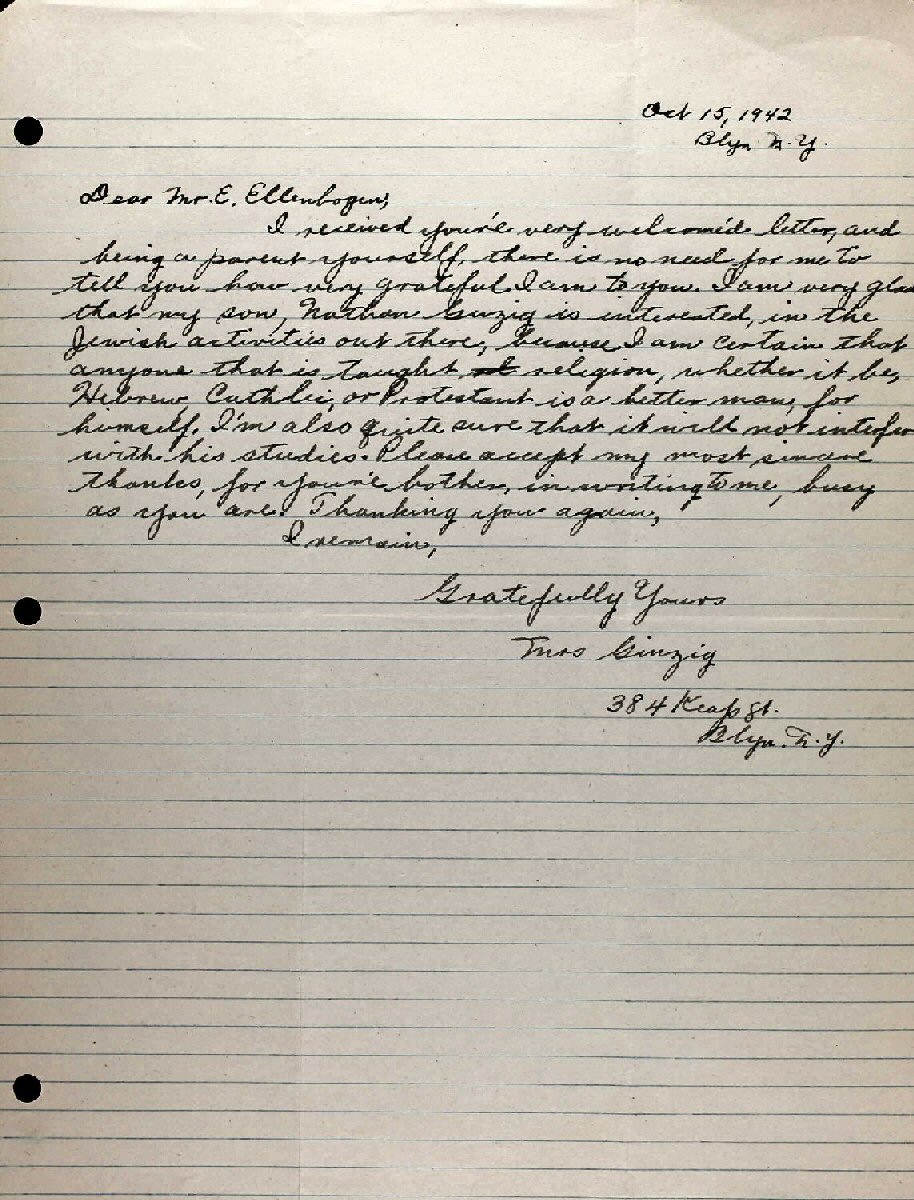 Oct 15, 1942
Blyn N.Y.
Dear Mr. E. Ellenbogen,
I received you're very welcomed letter, and
being a parent yourself, there is no need for me to
tell you how very grateful I am to you. I am very glad
that my son, Nathan Ginzig is interested, in the
Jewish activities out there, because I am certain that
anyone that is taught religion, whether it be,
Hebrew, Cathlic, or Protestant is a better man, for
himself. I'm also quite sure that it will not interfer
with his studies. Please accept my most sincere
thanks, for you're bother, in writing to me, busy
as you are. Thanking you again,
I remain,
Gratefully Yours
Mrs Ginzig
384 Keap St.
Blyn. N.Y.